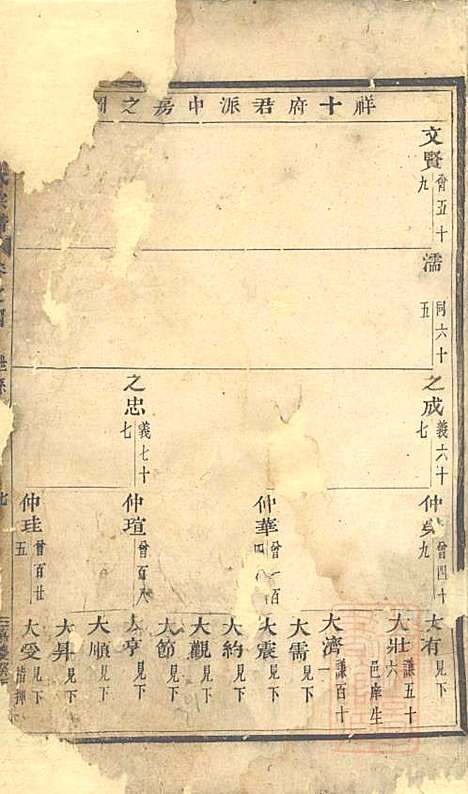 祥十府君派中房之
文賢 曾五十九
濡 同六十五
之成 義六十七
之忠 義七十七
仲 曾四十九
仲華 曾一百四
仲瑄 曾百八
仲珪 曾百廿五
大有 見下
大壯 謙五十六 邑庠生
大濟 謙百十一
大需 見下
大震 見下
大約 見下
大觀 見下
大節 見下
大亨 見下
大順 見下
大昇 見下
大受 見下